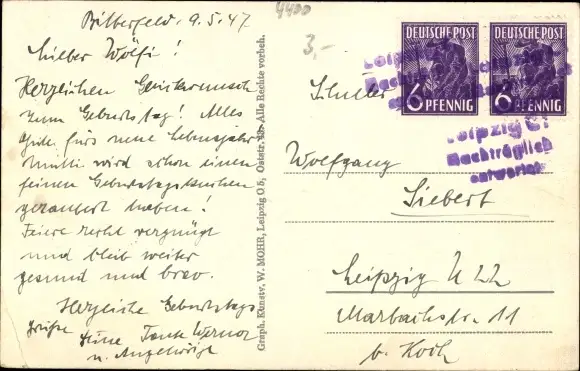 Bitterfeld, 9.5.47
lieber Wölfi!
Herzlichen Glückwunsch
zum Geburtstag! Alles
Gute fürs neue Lebensjahr
Mutti wird schon einen
feinen Geburtstagskuchen
gezaubert haben!
Feiere recht vergnügt
und bleib weiter
gesund und brav.
Herzliche Geburtstags
grüße Deine Tante
u. Angehörige
Graph. Kunstv. W. MOHR, Leipzig O 5, Oststr. Alle Rechte vorbeh.
4400
3,-
DEUTSCHE POST
6 PFENNIG
DEUTSCHE POST
6 PFENNIG
Leipzig
Leipzig
Nachträglich
entwertet
Schüler
Wolfgang
Siebert
Leipzig N 22
Marbachstr. 11
b. Koch